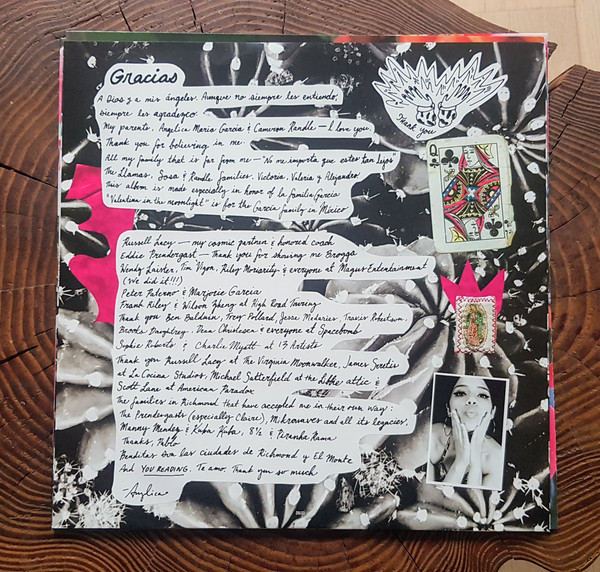 Gracias
A Dios y a mis ángeles. Aunque no siempre les entiendo,
siempre les agradezco.
My parents, Angelica Maria Garcia & Cameron Randle — I love you.
Thank you for believing in me.
All my family that is far from me — "No me importa que estes tan lejos"
The Llamas, Sosa & Randle families, Victoria, Valeria y Alejandro!
This album is made especially in honor of la familia Garcia
"Valentina in the moonlight" is for the Garcia family in México
Thank you
Q
Russell Lacy — my cosmic partner & honored coach
Eddie Prendergast — Thank you for showing me Brogga
Wendy Laister, Tim Vigon, Riley Moriarity & everyone at Magus Entertainment
(We did it!!!)
Peter Paterno & Marjorie Garcia
Frank Riley & Wilson Zheng at High Road Touring
Thank you Ben Baldwin, Trey Pollard, Jesse Medaries, Travis Robertson,
Brooks Daughtrey, Dean Christesen & everyone at Spacebomb
Sophie Roberts & Charlie Myatt at 13 Artists
Thank you Russell Lacy at The Virginia Moonwalker, James
at La Cocina Studios, Michael Satterfield at the Little attic &
Scott Lane at American Paradox
The families in Richmond that have accepted me in their own way:
The Prendergasts (especially Claire), Mikrowaves and all its legacies,
Manny Mendez & Kuba Kuba, 8½ & Piranha Rama
Thanks,
Benditas son las ciudades de Richmond y El Monte
And YOU READING. Te amo. Thank you so much
—Angélica